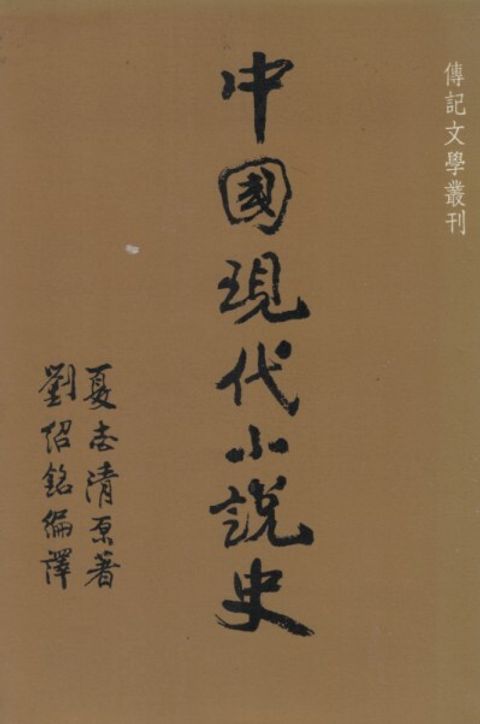 傳記文學叢刊
中國現代小說史
夏志清原著
劉紹銘編譯